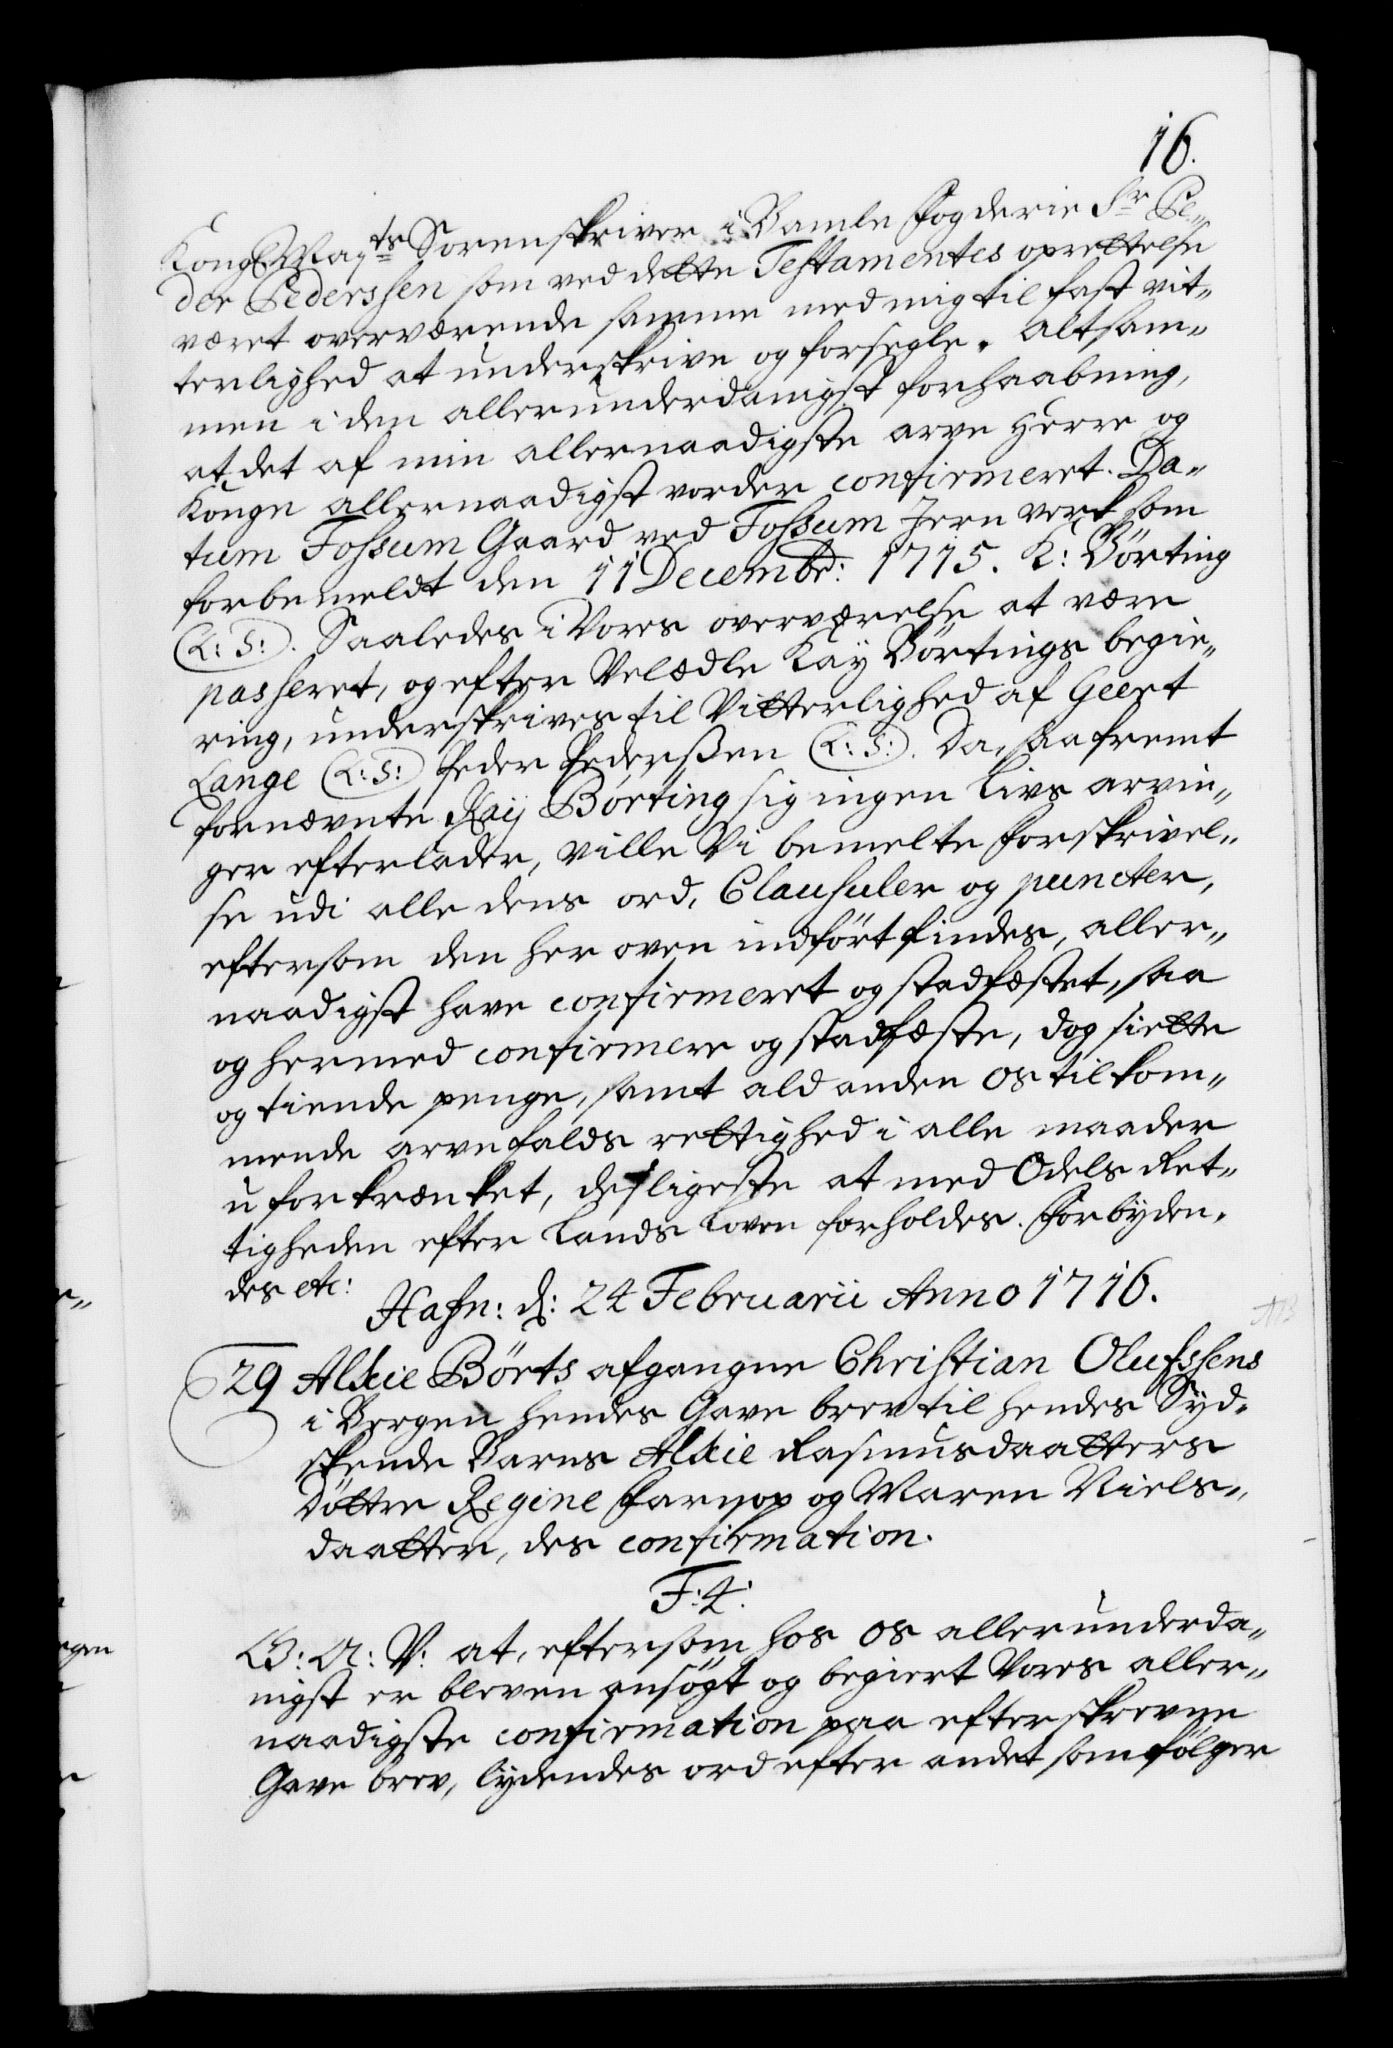 16.
Kongl May<sup>ts</sup> Sorenskriver i Bamle Fogderie S<sup>r</sup> Pe„
der Pederssen som ved dette Testamentes oprettelse
været overværende samme med mig til fast vit„
terlighed at underskrive og forsegle. Altsam„
men i den allerunderdanigst forhaabning,
at det af min allernaadigste arve Herre og
Konge allernaadigst vorder confirmeret. Da„
tum Fossum Gaard ved Fossum Jern verk som
forbemeldt den 11 Decembr: 1715. K: Börting
(L: S:). Saaledes i Vores overværelse at være
passeret, og efter Velædle Kaÿ Börtings begie„
ring, underskrives til Vitterlighed af Geert
Lange (L: S:) Peder Pederßen (L: S:). Da, saafremt
fornævnte Kaij Børting sig ingen Livs arvin„
ger efterlader, ville Vi bemelte forskrivel„
se udi alle dens ord, Clausuler og puncter,
eftersom den her oven indført findes, aller„
naadigst have confirmeret og stadfæstet, saa
og hermed confirmere og stadfæste, dog siette
og tiende penge, samt ald anden os tilkom„
mende arvefalds rettighed i alle maader
uforkrænket, desligeste at med Odels Ret„
tigheden efter Lands Loven forholdes. Forbÿden„
des etc:
Hafn: d: 24 Februarii Anno 1716.
29 Alxie Börts afgangne Christian Olufssens
i Bergen hendes Gave brev til hendes Syd„
skende Barns Alxie Rasmusdaatters
Döttre Regine Farnop og Maren Niels„
daatter, des confirmation.
F: 4:
G: A: V: at, eftersom hos os allerunderda„
nigst er bleven ansögt og begiert Vores aller„
naadigste confirmation paa efterskrevne
Gave brev, lÿdendes ord efter andet som fölger